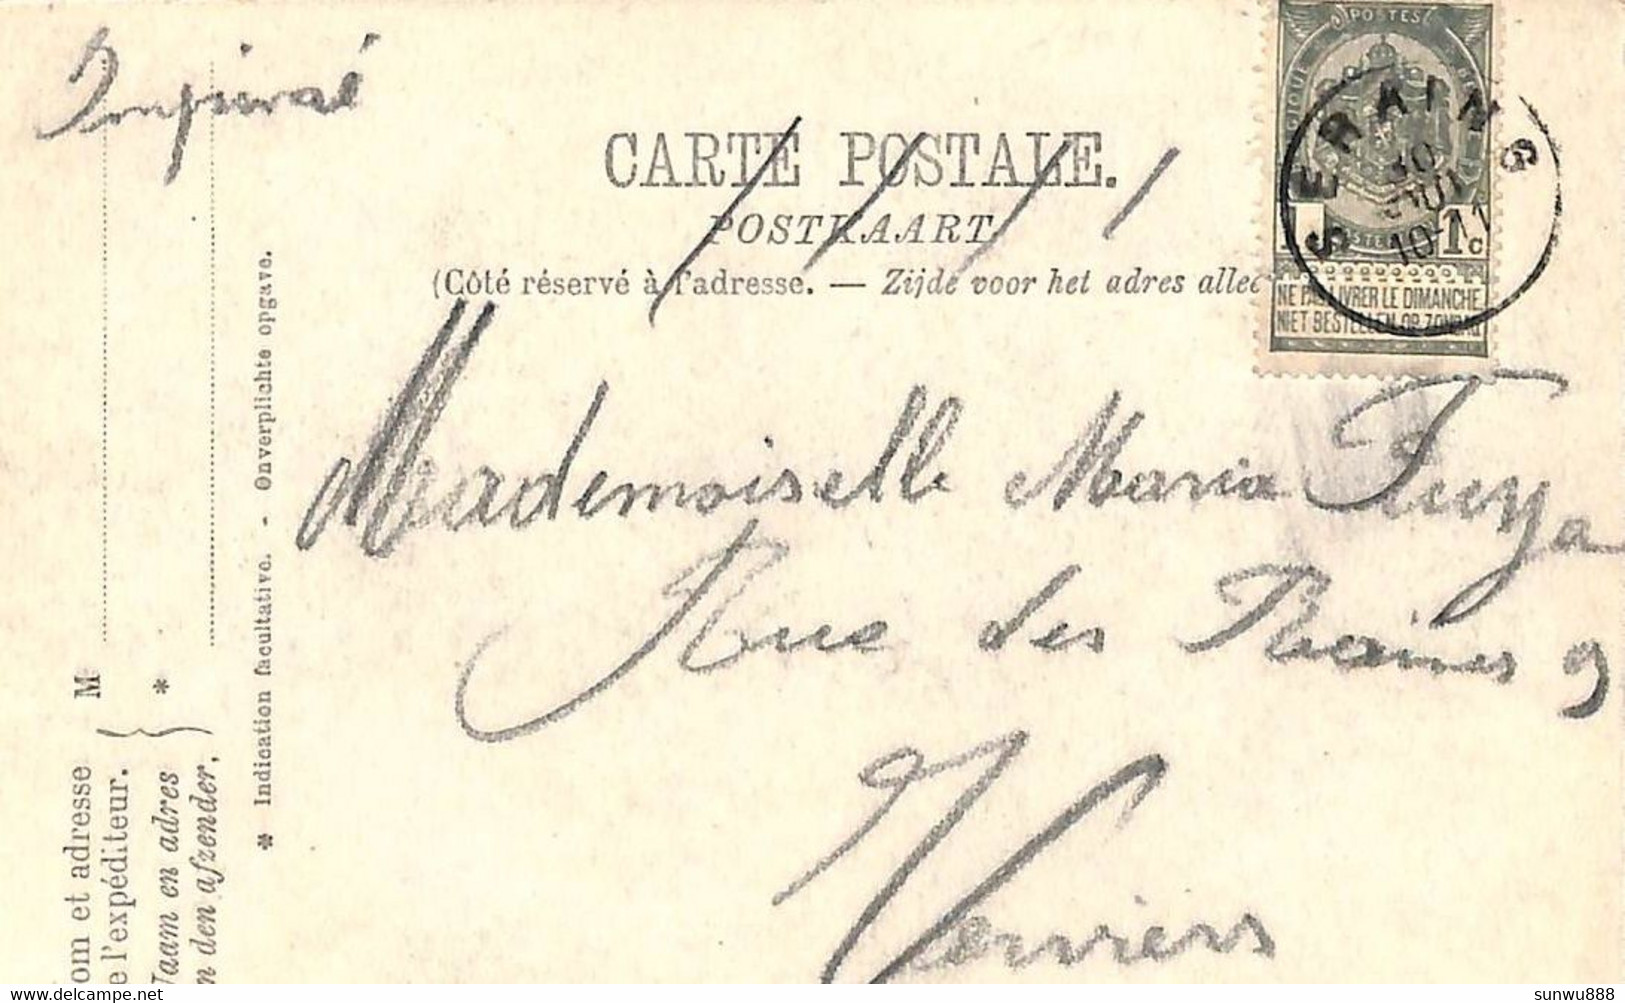 Imprimé
CARTE POSTALE.
POSTKAART
(Côté réservé à l'adresse. — Zijde voor het adres allee
POSTES
1 1c
NE PAS LIVRER LE DIMANCHE
NIET BESTELLEN OP ZONDAG
SERAING
10-11
Mademoiselle Maria
Rue des Raines 9
Verviers
* Indication facultative. - Onverplichte opgave.
M
*
om et adresse
e l'expéditeur.
Naam en adres
n den afzender,
delcampe.net
sunwu888